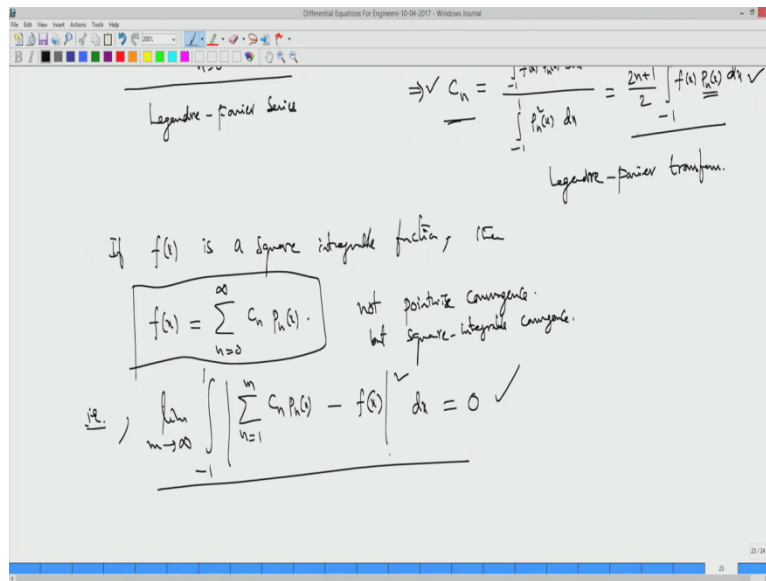 Differential Equations For Engineers-10-04-2017 - Windows Journal
File Edit View Insert Actions Tools Help
200%
B I
Legendre-Fourier Series
⇒ ✓ C_n = ∫_{-1}^{1} f(x) P_n(x) dx / ∫_{-1}^{1} P_n²(x) dx = 2n+1/2 ∫_{-1} f(x) P_n(x) dx ✓
Legendre-Fourier transform.
If f(x) is a square integrable function, then
f(x) = ∑_{n=0}^{∞} C_n P_n(x).
not pointwise convergence.
but square-integrable convergence.
i.e., lim_{m→∞} ∫_{-1}^{1} | ∑_{n=1}^{m} C_n P_n(x) - f(x) |² dx = 0 ✓
23 / 24
23